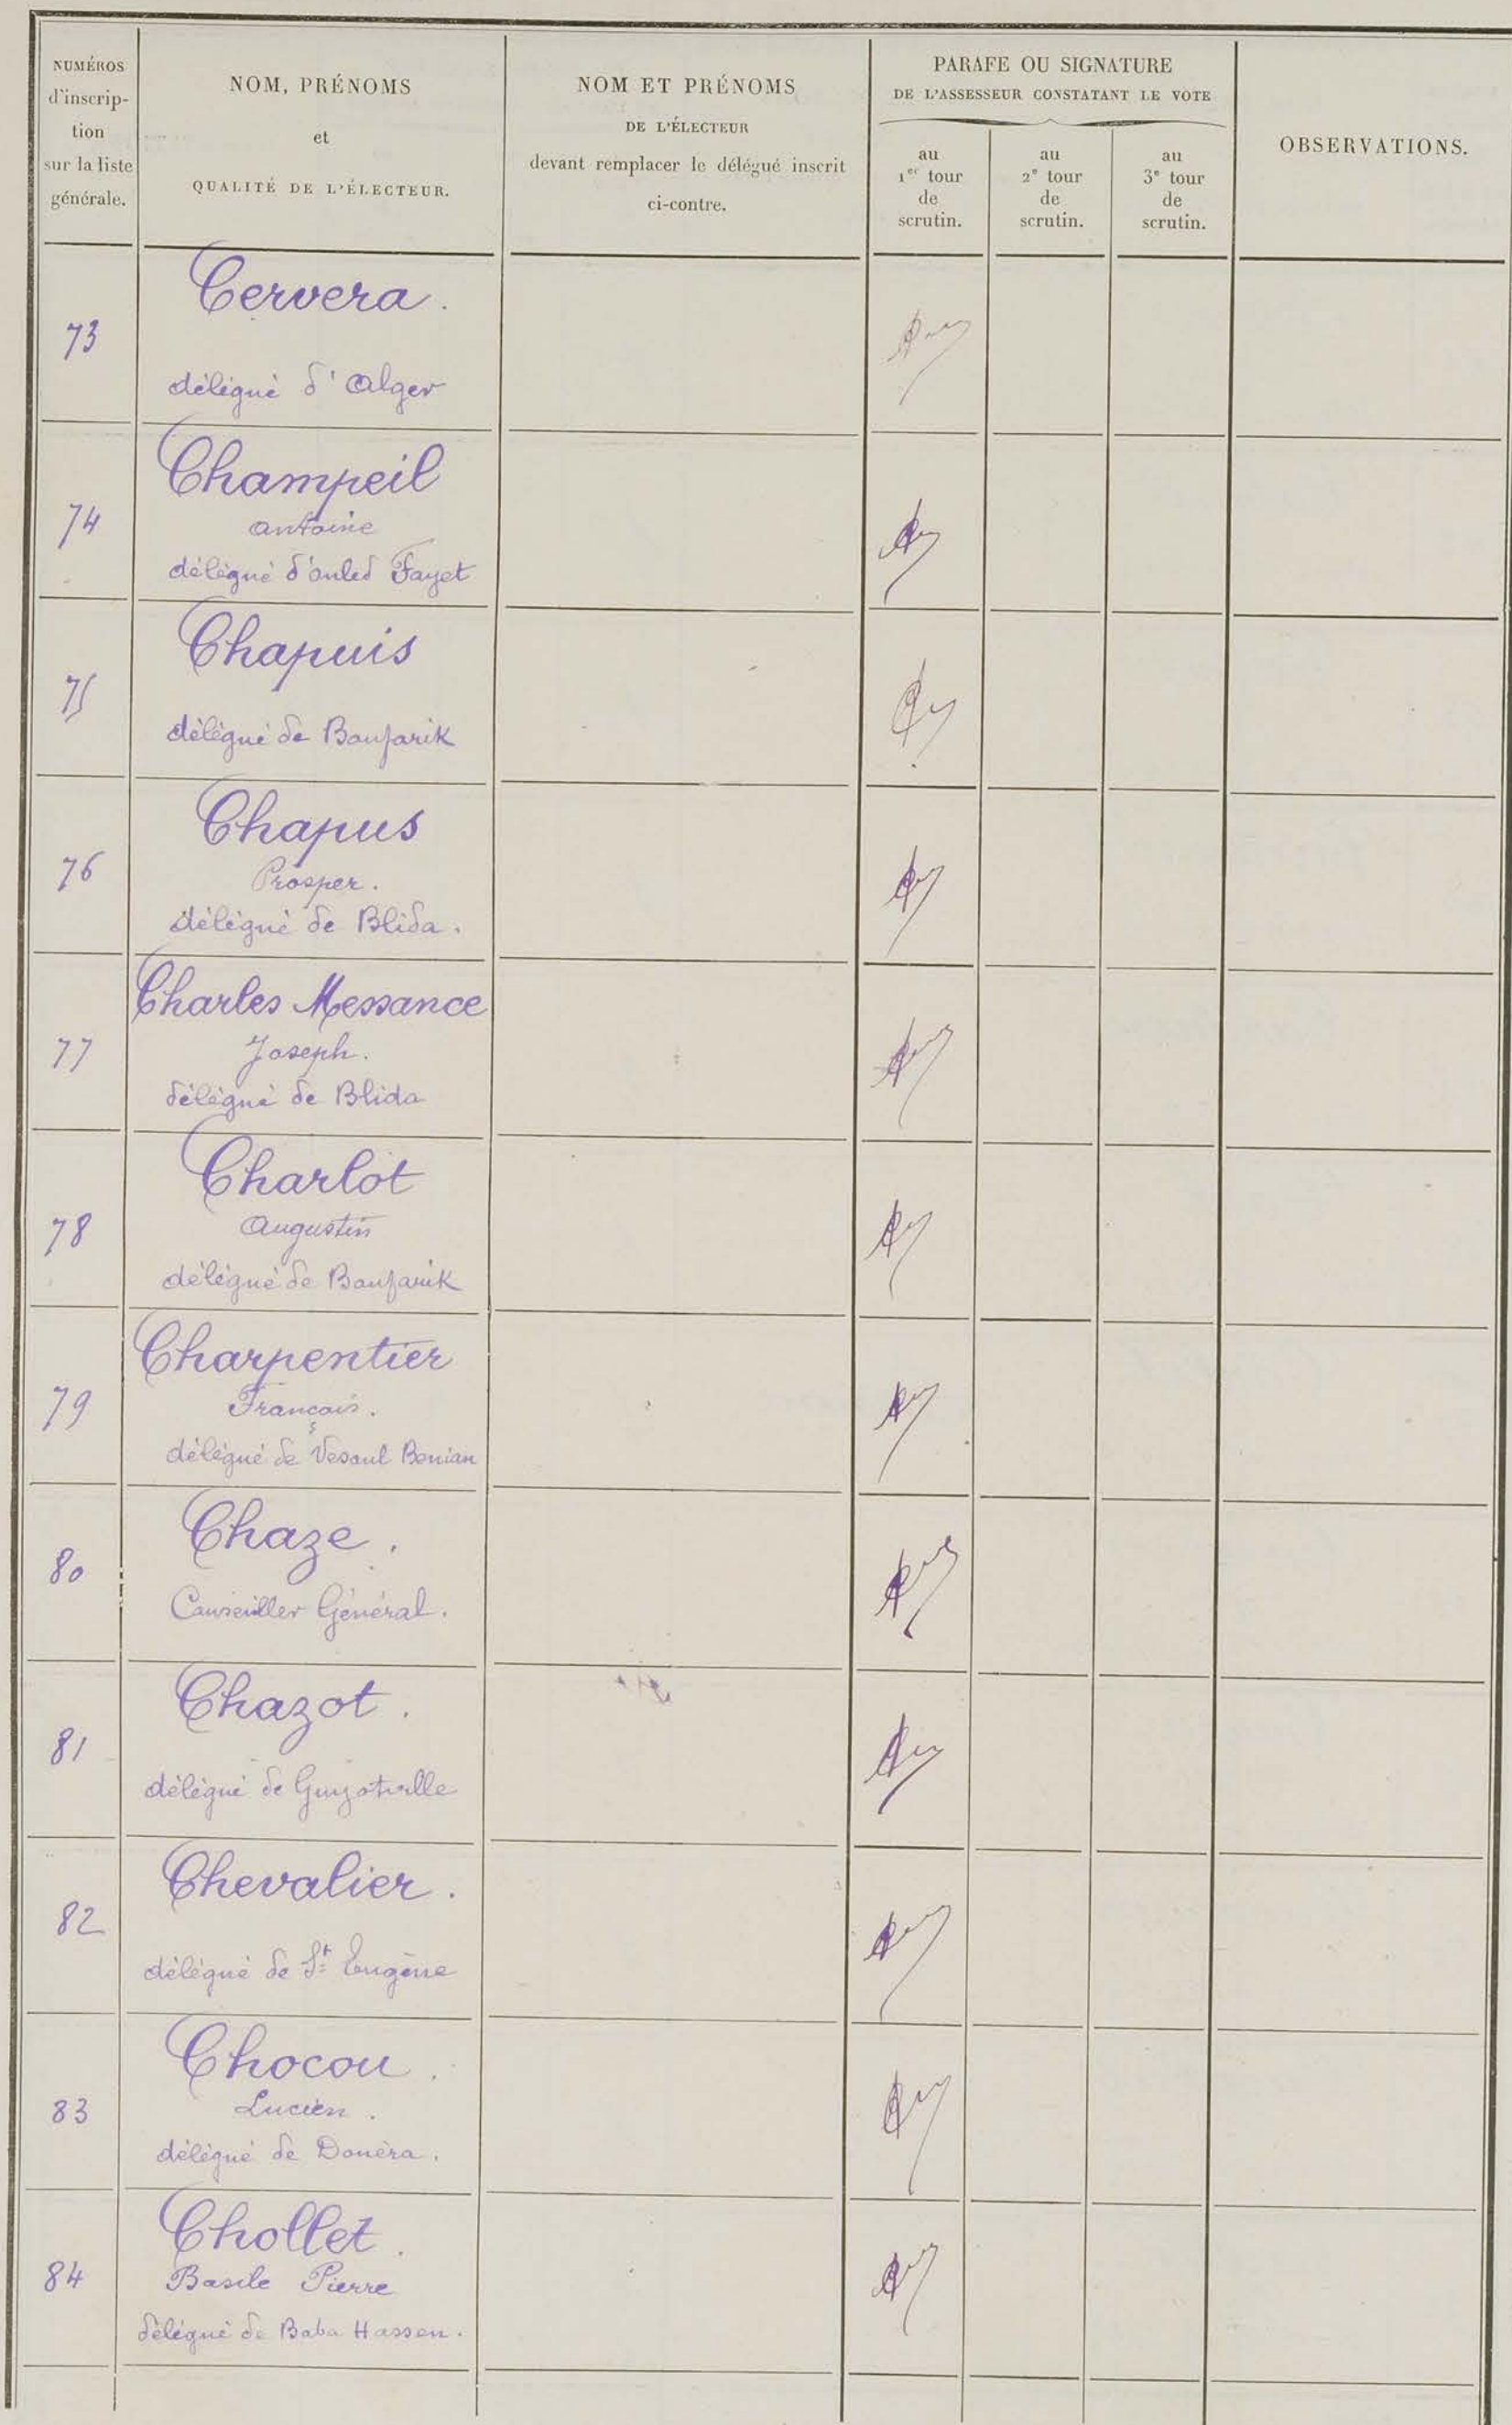 NUMÉROS
d'inscrip-
tion
sur la liste
générale.
NOM, PRÉNOMS
et
QUALITÉ DE L'ÉLECTEUR.
NOM ET PRÉNOMS
DE L'ÉLECTEUR
devant remplacer le délégué inscrit
ci-contre.
PARAFE OU SIGNATURE
DE L'ASSESSEUR CONSTATANT LE VOTE
au
1er tour
de
scrutin.
au
2e tour
de
scrutin.
au
3e tour
de
scrutin.
OBSERVATIONS.
73
Cervera.
délégué d'Alger
74
Champeil
Antoine
délégué d'ouled Fayet
75
Chapuis
délégué de Boufarik
76
Chapus
Prosper.
délégué de Blida.
77
Charles Messance
Joseph.
délégué de Blida
78
Charlot
Augustin
délégué de Boufarik
79
Charpentier
François.
délégué de Vesoul Benian
80
Chaze.
Conseiller Général.
81
Chazot.
délégué de Guyotville
82
Chevalier.
délégué de St Eugène
83
Chocou.
Lucien.
délégué de Douéra.
84
Chollet.
Basile Pierre
délégué de Baba Hassen.